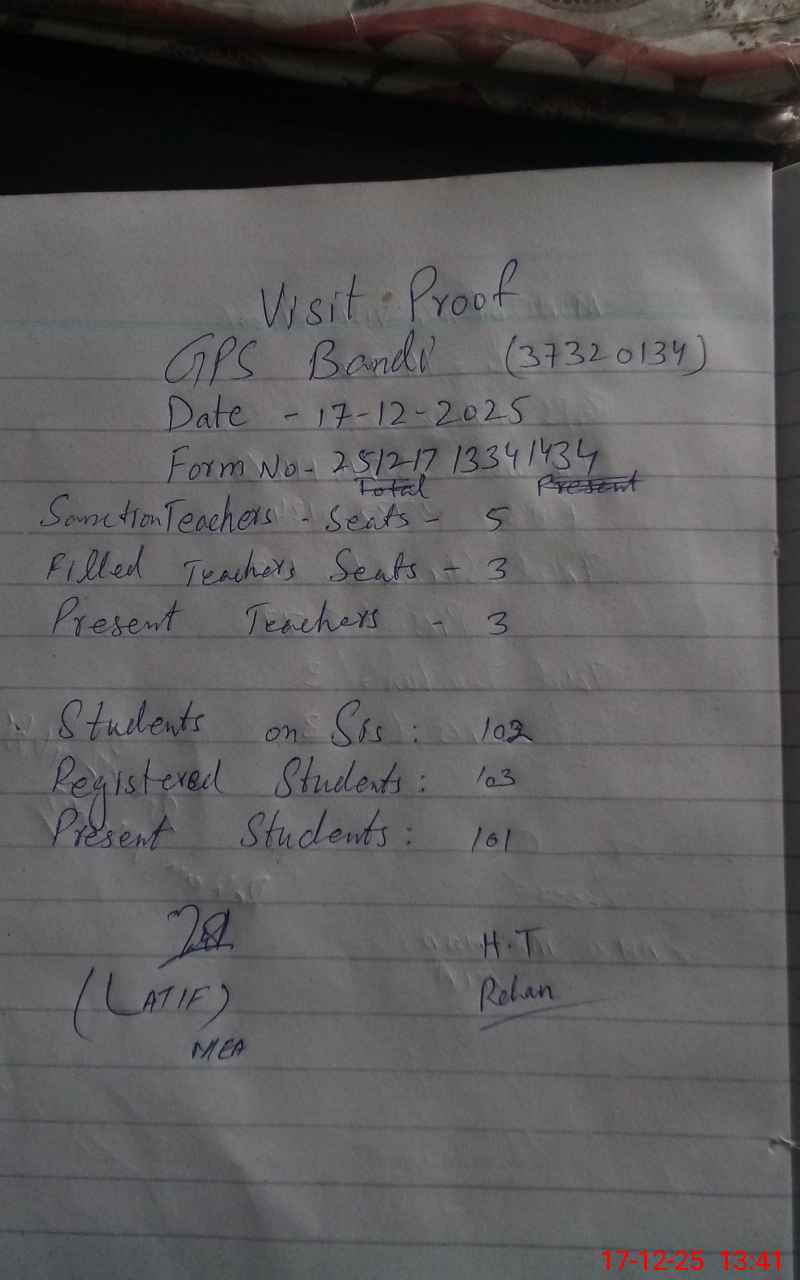 Visit Proof
GPS Bandi (37320134)
Date - 17-12-2025
Form No - 251217 13341434
Total Present
Sanction Teachers - Seats - 5
Filled Teachers Seats - 3
Present Teachers - 3
Students on Sis : 102
Registered Students : 103
Present Students : 101
H.T
(LATIF) Rehan
MEA
17-12-25 13:41